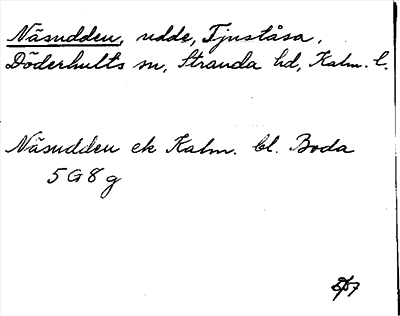 Näsudden, udde, Tjuståsa,
Döderhults sn, Stranda hd, Kalm. l.
Näsudden ek Kalm. bl. Boda
5 G 8 g